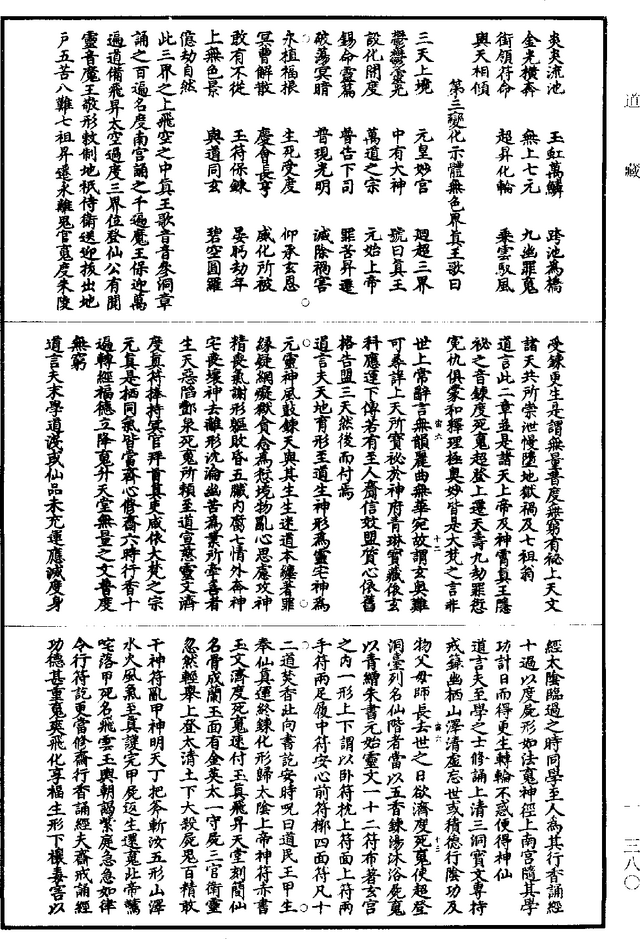 道藏
炎炎流池　玉虹萬鱗　跨池為橋
金光橫奔　無上七元　九幽罪魂
銜領符命　超昇化輪　乘雲馭風
與天相傾
第三變化示體無色界真王歌曰
三天上境　元皇妙宮　迥超三界
鬱鬱靈光　中有大神　號曰真王
設化開度　萬道之宗　元始上帝
錫命靈篇　普告下司　罪苦昇遷
破蕩冥暗　普現光明　滅除禍害
永植福根　生死受度　仰承玄恩
冥曹解散　慶會長亨　威化所被
敢有不從　玉符保鍊　晏眄劫年
上無色景　與道同玄　碧空圓羅
億劫自然
此三界之上飛空之中真王歌音音參洞章
誦之百遍名度南宮誦之千遍魔王保迎萬
遍道備飛昇太空過度三界位登仙公有聞
靈音魔王敬形敕制地祇侍衛送迎拔出地
戶五苦八難七祖昇遷永離鬼官魂度朱陵
受鍊更生是謂無量普度無窮有祕上天文
諸天共所崇泄慢墮地獄禍及七祖翁
道言此二章並是諸天上帝及神霄真王隱
祕之音鍊度死魂超登上遷天壽九劫罪愆
寃仇俱蒙和釋理極奧妙皆是大梵之言非
世上常辭言無韻麗曲無華宛故謂玄奧難
可尋詳上天所寶祕於神府青琳寶藏依玄
科應運下傳若有至人齎信效盟質心依舊
格告盟三天然後而付焉
道言夫天地育形王道生神形為靈宅神為
元靈神風鼓鍊天與其生生迷道本纏著罪
緣疑網礙獄貪念為愆境物亂心思慮攻神
精喪氣謝形軀敗昏五臟內腐七情外奔神
宅喪壞神去離形沉淪幽苦為業所牽善者
生天惡陷酆泉死魂所賴至道宣慈靈文濟
度真符捧持冥官拜首真更咸依大梵之宗
元真是栖同氣皆當齋心修齋六時行香十
遍轉經福德立降魂升天堂無量之文普度
無窮
道言夫末學道淺或仙品未充運應滅度身
經太陰臨過之時同學至人為其行香誦經
十過以度屍形如法魂神徑上南宮隨其學
功計日而得更生轉輪不惑便得神仙
道言夫至學之士修誦上清三洞寶文專持
戒籙幽栖山澤清虛忘世或積德行陰功及
物父母師長去世之日欲濟度死魂使超登
洞臺列名仙階者當以五香鍊湯沐浴屍魂
以青繒朱書元始靈文一十二符布著玄宮
之內一形上下謂以卧符枕上符面上符兩
手符兩足履中符安心前符槨四面符凡十
二道焚香北向書訖安時呪曰道民王甲生
奉仙真運終鍊化形歸太陰上帝神符赤書
玉文濟度死魂速付玉真飛昇天堂刻簡仙
名骨成蘭玉面有金英太一守屍三官衛靈
忽然輕舉上登太清土下大殺屍鬼百精敢
干神符亂甲神明天丁把斧斬汝五形山澤
水火風氣至真護完甲屍返生還魂北帝驚
咤落甲死名飛雲玉輿朝謁紫庭急急如律
令行符訖更當修齋行香誦經夫齋戒誦經
功德甚重魂爽飛化享福生形下欀毒害以
霄六　十二
霄六　十三
一一三八〇